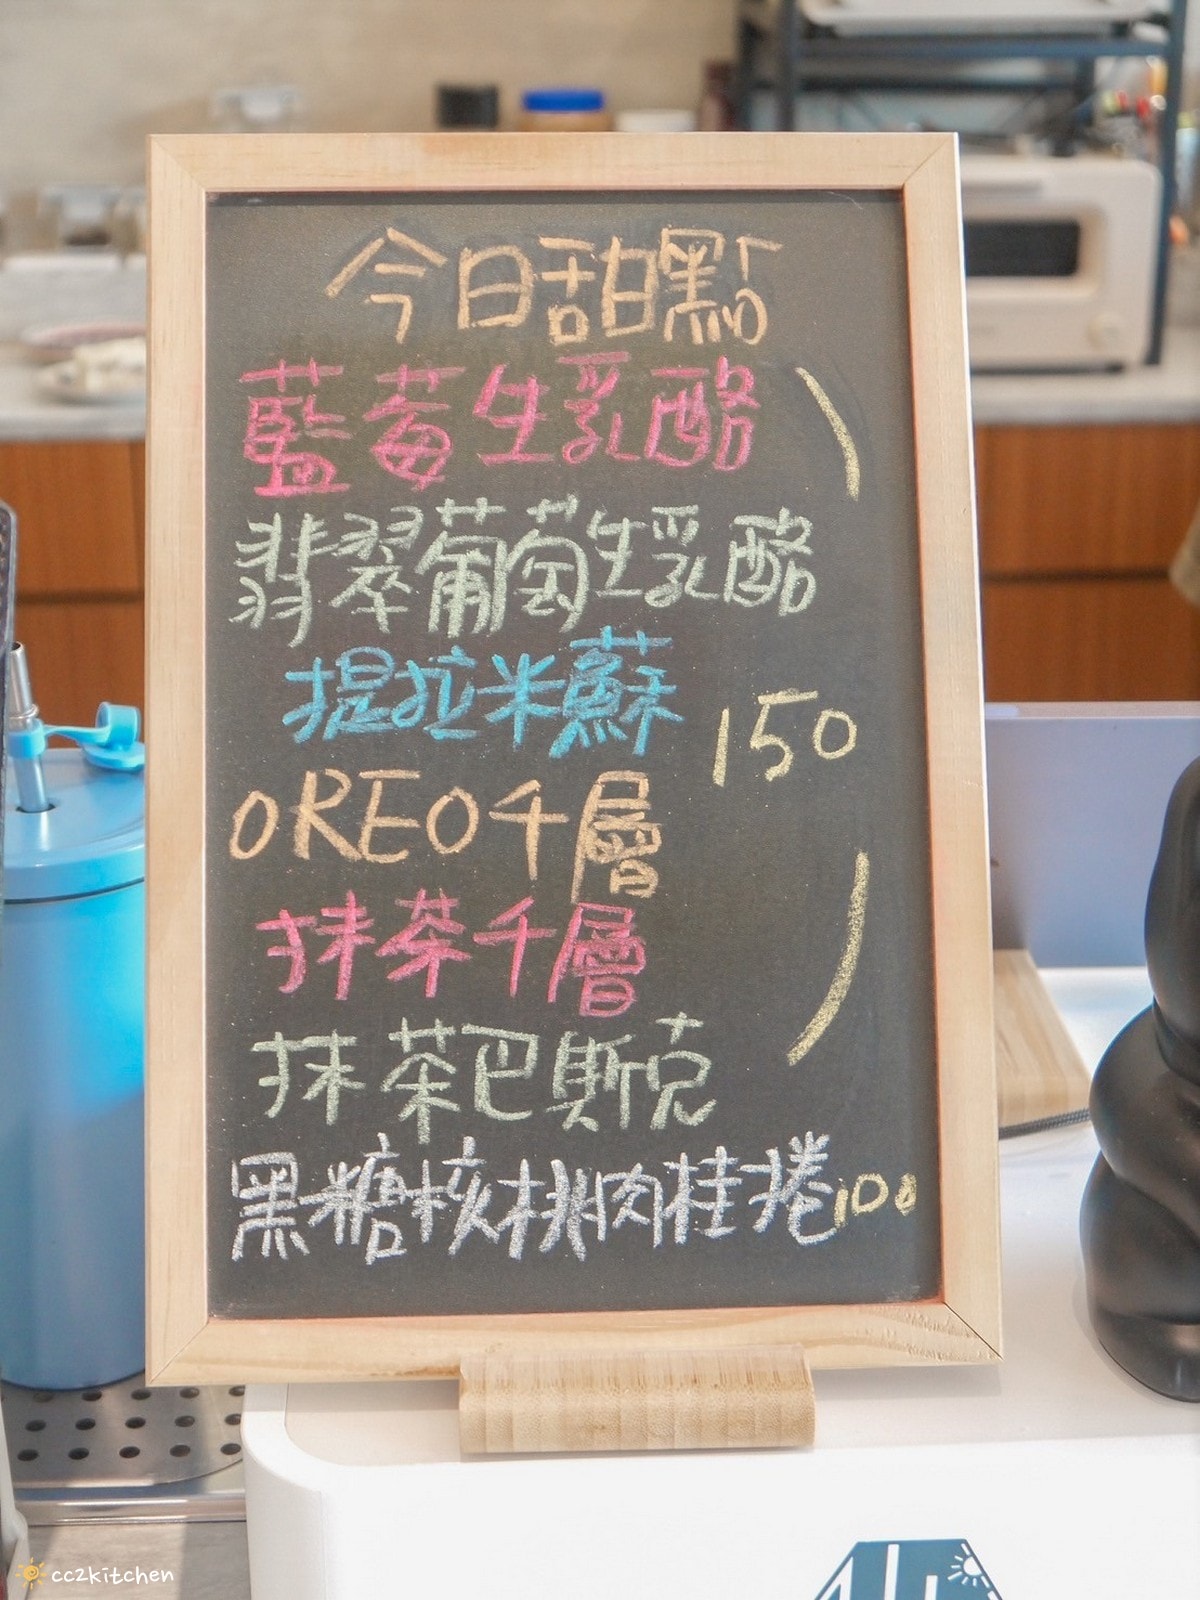 今日甜點
藍莓生乳酪
翡翠葡萄生乳酪
提拉米蘇
150
OREO千層
抹茶千層
抹茶巴斯克
黑糖核桃肉桂捲100
cc2kitchen